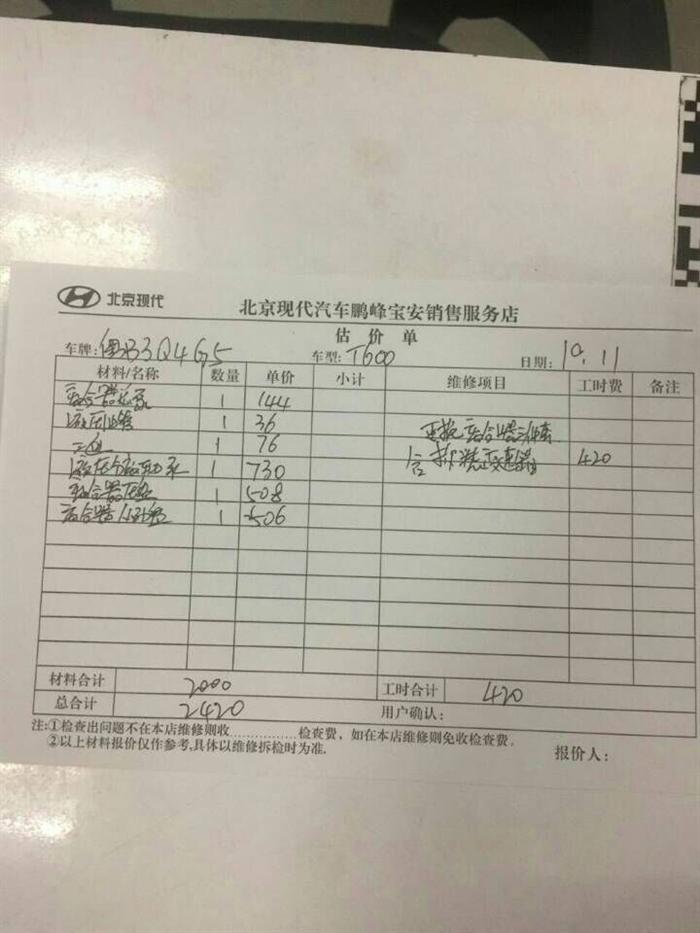 北京现代 北京现代汽车鹏峰宝安销售服务店
估价单
车牌: B3Q4G5 车型: T600 日期: 10.11
材料/名称 数量 单价 小计 维修项目 工时费 备注
离合器总泵 1 144
液压油管 1 36
1 76
液压分离助力泵 1 730 420
离合器压盘 1 508
离合器 1 506
材料合计 2000 工时合计 420
总合计 2420 用户确认:
注:①检查出问题不在本店维修则收..................检查费,如在本店维修则免收检查费。
②以上材料报价仅作参考,具体以维修拆检时为准.
报价人: